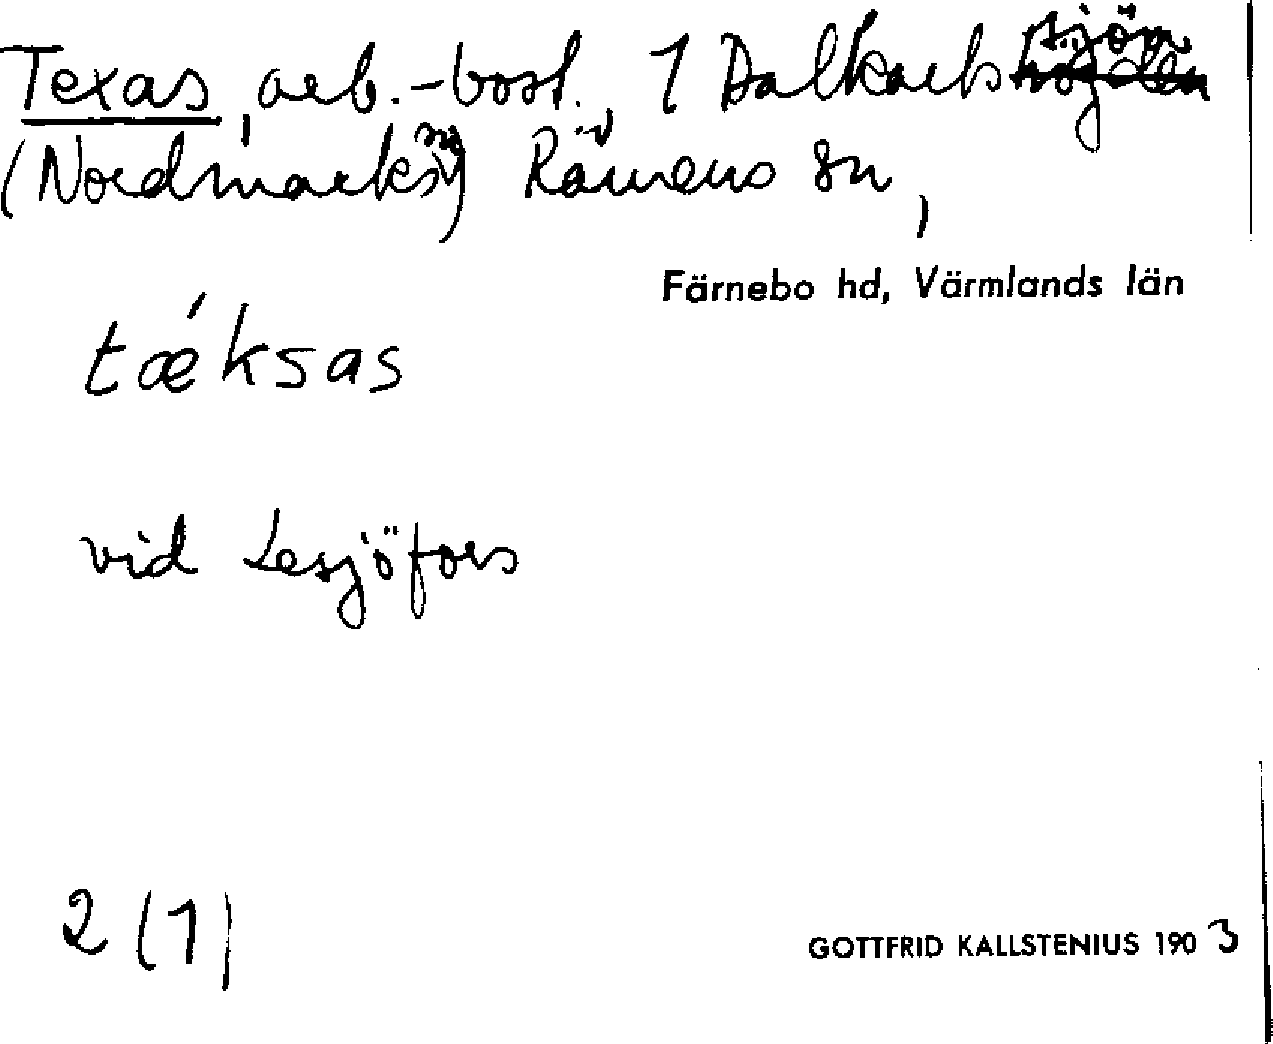 Texas, arb.-bost., 1 Dalkarlssjön
(Nordmarks sn) Rämens sn,
Färnebo hd, Värmlands län
tǽksas
vid Lesjöfors
2 (1)
GOTTFRID KALLSTENIUS 1903